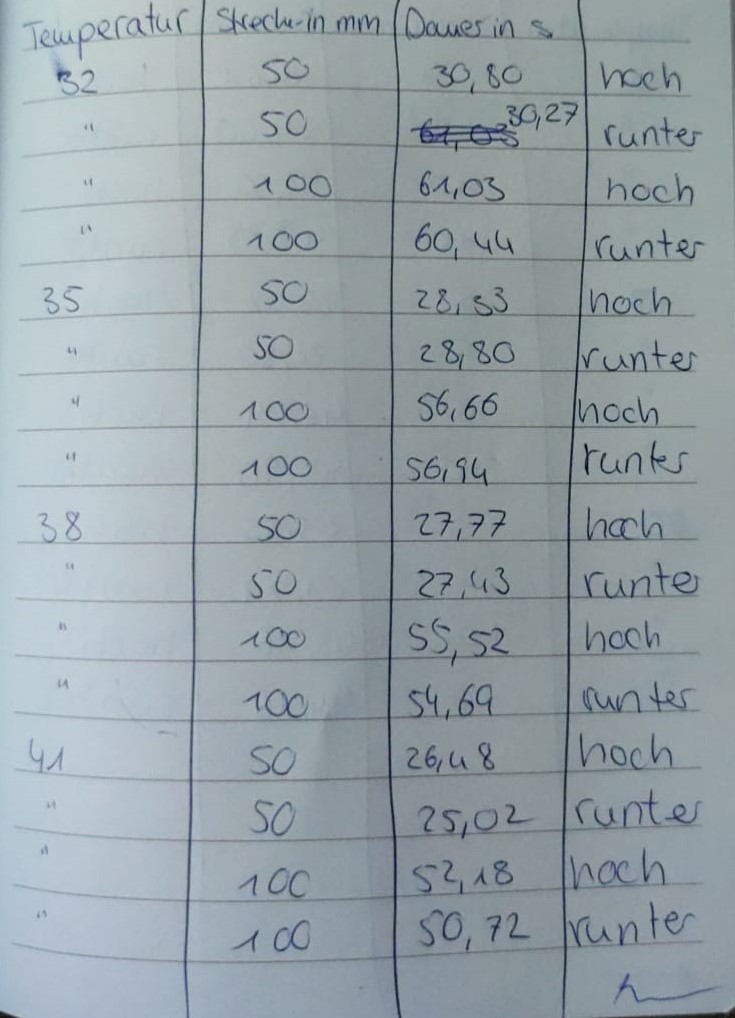 Temperatur Strecke in mm Dauer in s
32 50 30,80 hoch
" 50 30,27 runter
" 100 61,03 hoch
" 100 60,44 runter
35 50 28,53 hoch
" 50 28,80 runter
" 100 56,66 hoch
" 100 56,94 runter
38 50 27,77 hoch
" 50 27,43 runter
" 100 55,52 hoch
" 100 54,69 runter
41 50 26,48 hoch
" 50 25,02 runter
" 100 52,18 hoch
" 100 50,72 runter